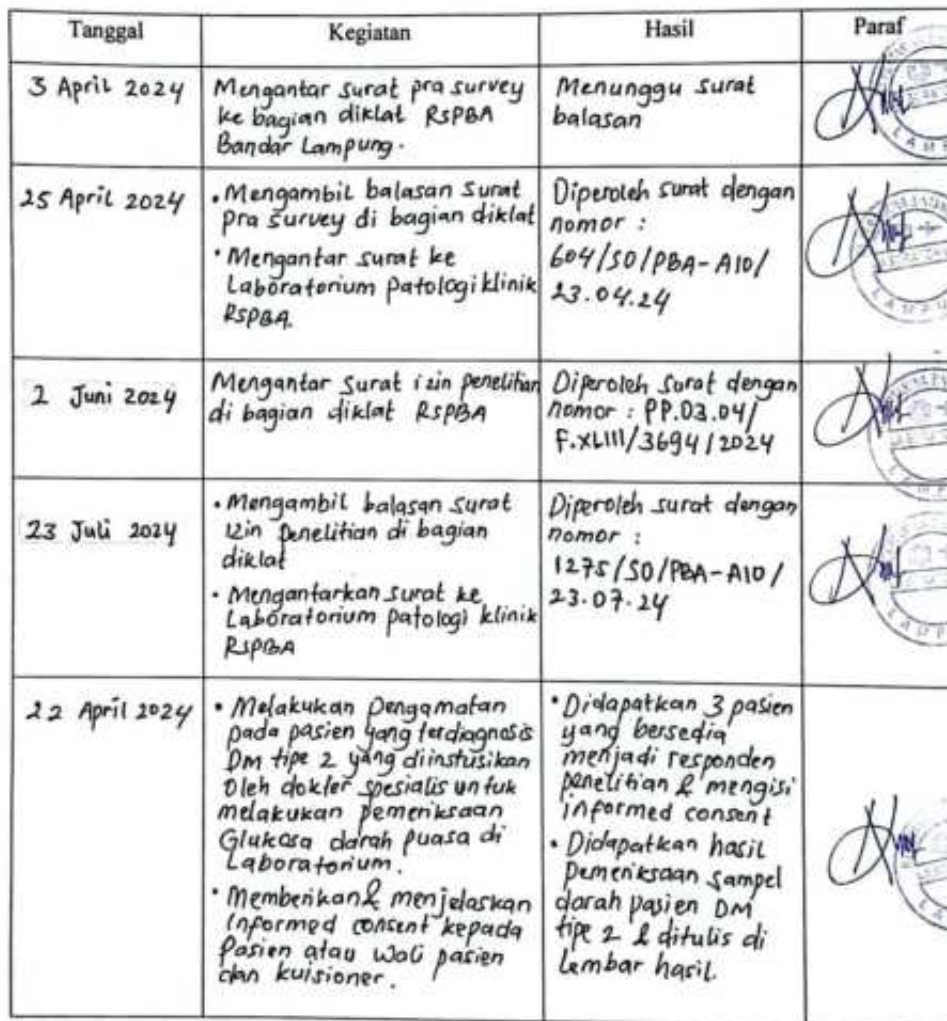 Tanggal Kegiatan Hasil Paraf
3 April 2024
Mengantar surat pra survey
ke bagian diklat RSPBA
Bandar Lampung.
Menunggu surat
balasan
25 April 2024
• Mengambil balasan surat
pra survey di bagian diklat
• Mengantar surat ke
Laboratorium patologi klinik
RSPBA.
Diperoleh surat dengan
nomor :
604/SO/PBA-A10/
23.04.24
2 Juni 2024
Mengantar surat izin penelitian
di bagian diklat RSPBA
Diperoleh surat dengan
nomor : PP.03.04/
F.XLIII/3694/2024
23 Juli 2024
• Mengambil balasan surat
izin penelitian di bagian
diklat
• Mengantarkan surat ke
Laboratorium patologi klinik
RSPBA
Diperoleh surat dengan
nomor :
1275/SO/PBA-A10/
23.07.24
22 April 2024
• Melakukan pengamatan
pada pasien yang terdiagnosis
DM tipe 2 yang diinstusikan
oleh dokter spesialis untuk
melakukan pemeriksaan
Glukosa darah puasa di
Laboratorium.
• Memberikan & menjelaskan
informed consent kepada
Pasien atau wali pasien
dan kuisioner.
• Didapatkan 3 pasien
yang bersedia
menjadi responden
penelitian & mengisi
informed consent
• Didapatkan hasil
pemeriksaan sampel
darah pasien DM
tipe 2 & ditulis di
lembar hasil.